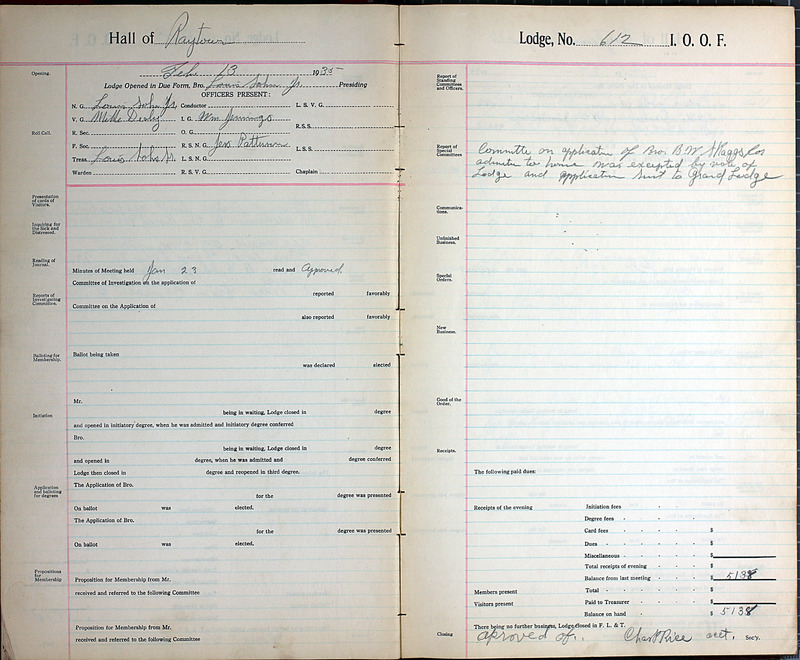 Hall of Raytown
Feb 13 1935
Opening.
Lodge Opened in Due Form, Bro. Louis John Jr. Presiding
OFFICERS PRESENT:
N. G. Louis John Jr. Conductor L. S. V. G.
V. G. Mille I. G. Wm Jennings R.S.S.
Roll Call.
R. Sec. O. G.
F. Sec. R. S. N. G. Jess Patterson L. S. S.
Treas. Louis John Jr. L. S. N. G.
Warden R. S. V. G. Chaplain
Presentation of cards of Visitors.
Inquiring for the Sick and Distressed.
Reading of Journal.
Minutes of Meeting held Jan 23 read and Approved
Committee of Investigation on the application of
Reports of Investigating Committee.
reported favorably
Committee on the Application of
also reported favorably
Balloting for Membership.
Ballot being taken
was declared elected
Mr.
being in waiting, Lodge closed in degree
Initiation
and opened in initiatory degree, when he was admitted and initiatory degree conferred
Bro.
being in waiting, Lodge closed in degree
and opened in degree, when he was admitted and degree conferred
Lodge then closed in degree and reopened in third degree.
Application and balloting for degrees
The Application of Bro.
for the degree was presented
On ballot was elected.
The Application of Bro.
for the degree was presented
On ballot was elected.
Propositions for Membership
Proposition for Membership from Mr.
received and referred to the following Committee
Proposition for Membership from Mr.
received and referred to the following Committee
Lodge, No. 612 I. O. O. F.
Report of Standing Committees and Officers.
Report of Special Committees
Committe on application of Bro. B W Skaggs for
admitte to home was excepted by vote of
Lodge and application sent to Grand Lodge
Communications.
Unfinished Business.
Special Orders.
New Business.
Good of the Order.
Receipts.
The following paid dues:
Receipts of the evening Initiation fees
Degree fees
Card fees $
Dues $
Miscellaneous $
Total receipts of evening
Balance from last meeting $ 5138
Members present Total $
Visitors present Paid to Treasurer $
Balance on hand $ 5138
There being no further business, Lodge closed in F. L. & T.
Closing aproved of. Chas H Rice Sec'y.